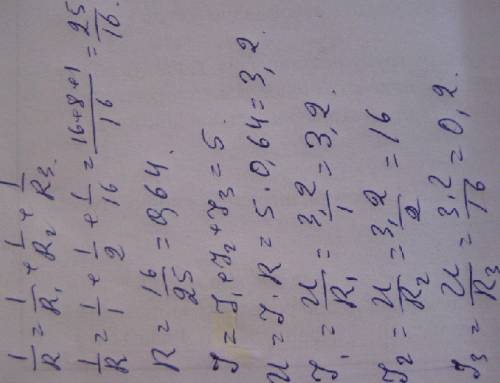 1/R = 1/R₁ + 1/R₂ + 1/R₃.
1/R = 1/1 + 1/2 + 1/16 = (16+8+1)/16 = 25/16.
R = 16/25 = 0,64.
J = J₁ + J₂ + J₃ = 5.
U = J · R = 5 · 0,64 = 3,2.
J₁ = U/R₁ = 3,2/1 = 3,2.
J₂ = U/R₂ = 3,2/2 = 16
J₃ = U/R₃ = 3,2/16 = 0,2.